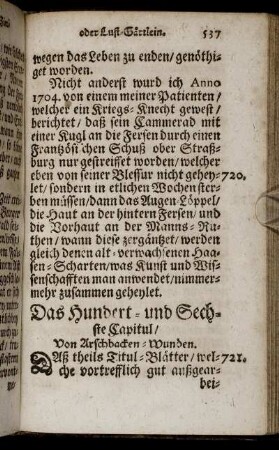 oder Lust-Gärtlein. 537
wegen das Leben zu enden / genöthi-
get worden.
Nicht anderst wurd ich Anno
1704. von einem meiner Patienten /
welcher ein Kriegs-Knecht gewest /
berichtet / daß sein Cammerad mit
einer Kugl an die Fersen durch einen
Frantzösischen Schuß ober Straß-
burg nur gestreiffet worden / welcher
eben von seiner Blessur nicht gehey- 720.
let / sondern in etlichen Wochen ster-
ben müssen / dann das Augen-Löppel /
die Haut an der hintern Fersen, und
die Vorhaut an der Manns-Ru-
then / wann diese zergäntzet / werden
gleich denen alt-verwachsenen Haa-
sen-Scharten / was Kunst und Wis-
senschafften man anwendet / nimmer-
mehr zusammen geheylet.
Das Hundert- und Sech-
ste Capitul /
Von Arschbacken-Wunden.
Daß theils Titul-Blätter / wel- 721.
che vortrefflich gut außgear-
bei-